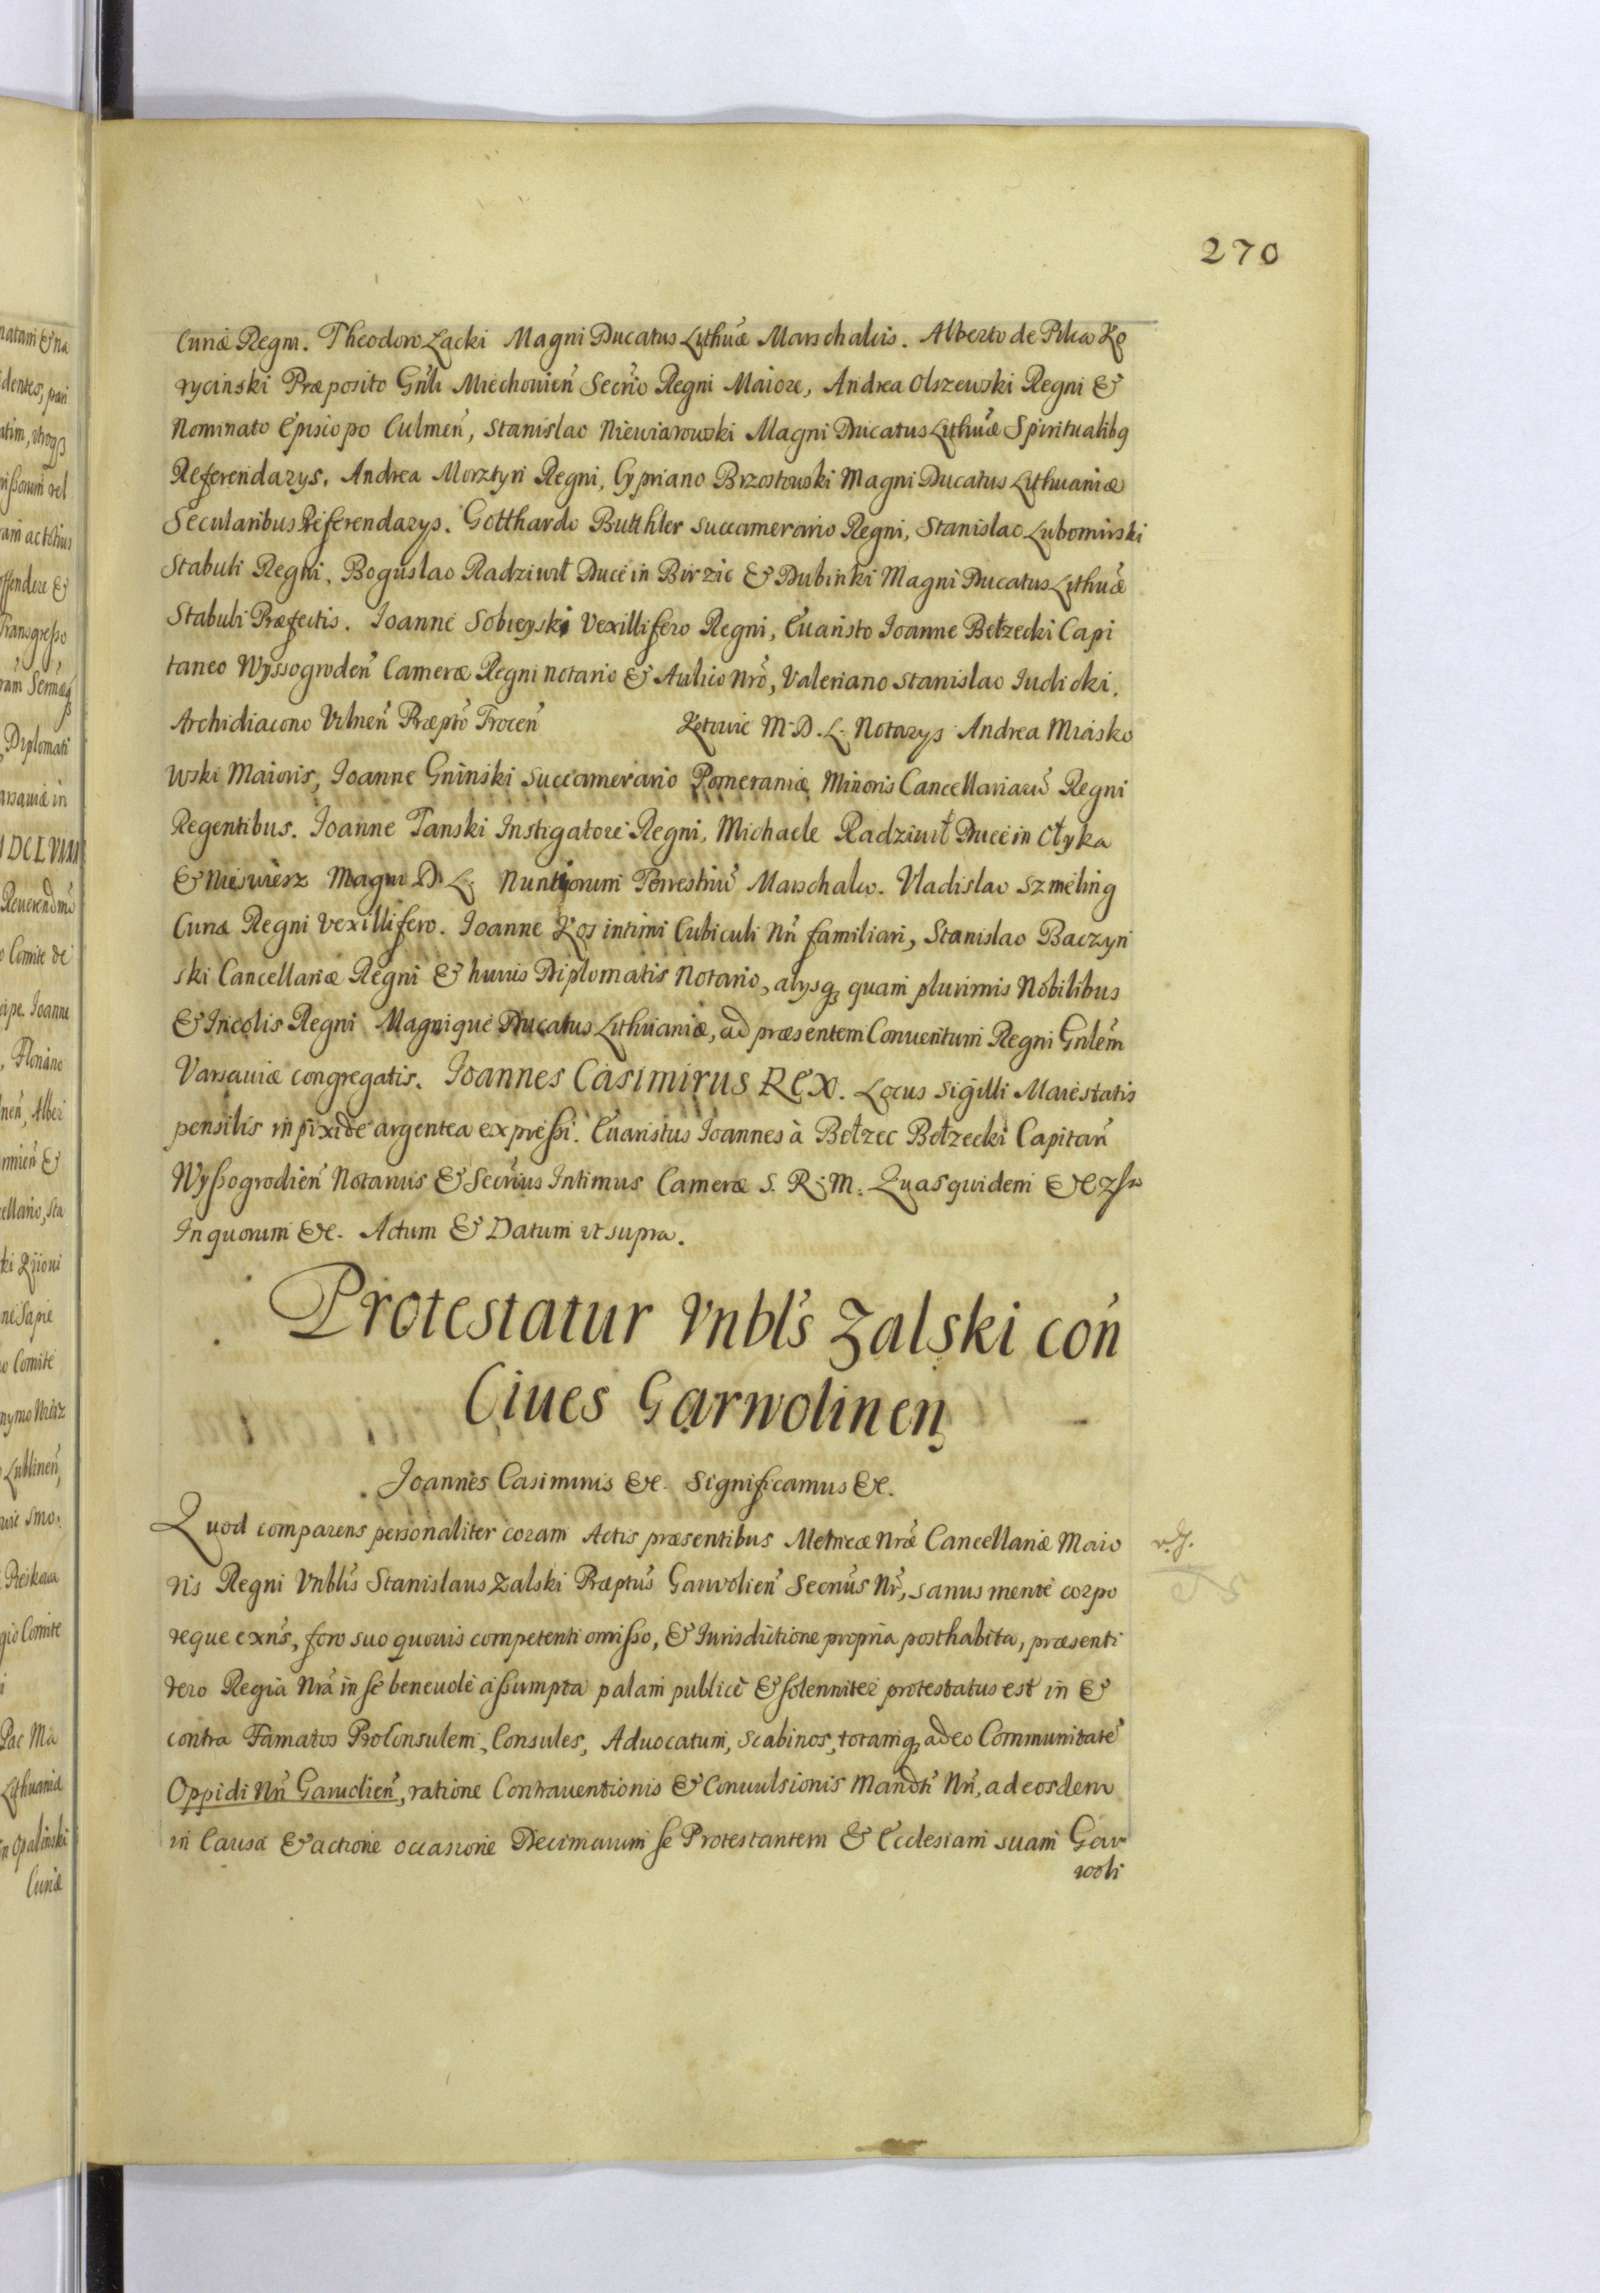 270
Curiæ Regni. Theodoro Lacki Magni Ducatus Lithuæ Marschalcis. Alberto de Pilca Ko
rycinski Præposito Gnli Miechouień Secrio Regni Maiore, Andrea Olszewski Regni &
Nominato Episcopo Culmeń, Stanislao Niewiarowski Magni Ducatus Lithuæ Spiritualibq
Referendarys. Andrea Morsztyn Regni, Cypriano Brzostowski Magni Ducatus Lithuaniæ
Secularibus Referendarys. Gotthardo Butthler Succamerario Regni, Stanislao Lubomirski
Stabuli Regni, Boguslao Radziwił Duce in Birzie & Dubinki Magni Ducatus Lithuæ
Stabuli Præfectis. Ioanne Sobieyski Vexillifero Regni, Euaristo Ioanne Bełzecki Capi
taneo Wyssogrodeń Cameræ Regni notario & Aulico Nrō, Valeriano Stanislao Iudicki.
Archidiacono Vilneń Præptō Troceń Kotowic M. D. L. Notarys Andrea Miasko
wski Maioris, Ioanne Gninski Succamerario Pomeraniæ Minoris Cancellariarū Regni
Regentibus. Ioanne Tanski Instigatore Regni, Michaele Radziwił Duce in Ołyka
& Nieswiesz Magni D. L. Nuntiorum Terrestriū Marschalco. Vladislao Szmeling
Curiæ Regni vexillifero. Ioanne Kos intimi Cubiculi Nri familiari, Stanislao Baczyn
ski Cancellariæ Regni & huius Diplomatis Notario, alysq quam plurimis Nobilibus
& Incolis Regni Magnique Ducatus Lithuaniæ, ad præsentem Conuentum Regni Gnlem
Varsauiæ congregatis. Ioannes Casimirus Rex. Locus Sigilli Maiestatis
pensilis in pixide argentea expressi. Euaristus Ioannes à Bełzec Bełzecki Capitań
Wyssogrodień Notarius & Secrius Intimus Cameræ S. R. M. Quasquidem &c
In quorum &c. Actum & Datum vt supra.
Protestatur Vnbls Zalski con
Ciues Garwolinen
Ioannes Casimirus &c. Significamus &c.
Quod comparens personaliter coram Actis præsentibus Metricæ Nræ Cancellariæ Maio
ris Regni Vnblis Stanislaus Zalski Præptus Garwolień Secrius Nr, sanus mente corpo
reque exns, foro suo quouis competenti omisso, & Iurisdictione propria posthabita, præsenti
vero Regia Nra in se beneuole assumpta palam publice & solenniter protestatus est in &
contra Famatos ProConsulem, Consules, Aduocatum, Scabinos, totamq adeo Communitate
Oppidi Nri Garwolień, ratione Contrauentionis & Conuulsionis Mandti Nri, ad eosdem
in Causa & actione occasione Decimarum se Protestantem & Ecclesiam suam Gar
woli